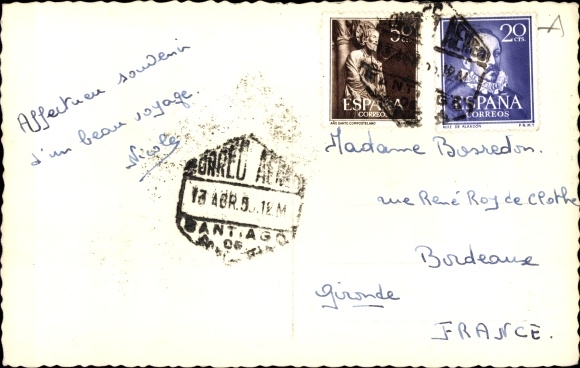 Affectueux souvenir
d'un beau voyage.
Nicole
50
ESPAÑA
CORREOS
AÑO SANTO COMPOSTELANO
20
CTS.
ESPAÑA
CORREOS
RUIZ DE ALARCON
F.N.M.T.
A
CORREO AEREO
13 ABR. 5 .12M
SANTIAGO
DE
Madame Bosredon.
rue René Roy de Clotte
Bordeaux
Gironde
FRANCE.